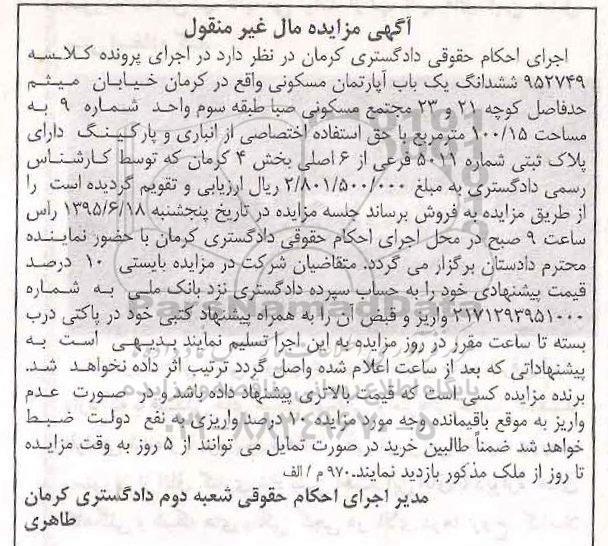 آگهی مزایده مال غیر منقول
اجرای احکام حقوقی دادگستری کرمان در نظر دارد در اجرای پرونده کلاسه
۹۵۲۷۴۹ ششدانگ یک باب آپارتمان مسکونی واقع در کرمان خیابان میثم
حدفاصل کوچه ۲۱ و ۲۳ مجتمع مسکونی صبا طبقه سوم واحد شماره ۹ به
مساحت ۱۰۰/۱۵ مترمربع با حق استفاده اختصاصی از انباری و پارکینگ دارای
پلاک ثبتی شماره ۵۰۱۱ فرعی از ۶ اصلی بخش ۴ کرمان که توسط کارشناس
رسمی دادگستری به مبلغ ۲/۸۰۱/۵۰۰/۰۰۰ ریال ارزیابی و تقویم گردیده است را
از طریق مزایده به فروش برساند جلسه مزایده در تاریخ پنجشنبه ۱۳۹۵/۶/۱۸ راس
ساعت ۹ صبح در محل اجرای احکام حقوقی دادگستری کرمان با حضور نماینده
محترم دادستان برگزار می گردد. متقاضیان شرکت در مزایده بایستی ۱۰ درصد
قیمت پیشنهادی خود را به حساب سپرده دادگستری نزد بانک ملی به شماره
۲۱۷۱۲۹۳۹۵۱۰۰۰ واریز و قبض آن را به همراه پیشنهاد کتبی خود در پاکتی درب
بسته تا ساعت مقرر در روز مزایده به این اجرا تسلیم نمایند بدیهی است به
پیشنهاداتی که بعد از ساعت اعلام شده واصل گردد ترتیب اثر داده نخواهد شد.
برنده مزایده کسی است که قیمت بالاتری پیشنهاد داده باشد و در صورت عدم
واریز به موقع باقیمانده وجه مورد مزایده ۱۰ درصد واریزی به نفع دولت ضبط
خواهد شد ضمناً طالبین خرید در صورت تمایل می توانند از ۵ روز به وقت مزایده
تا روز از ملک مذکور بازدید نمایند. ۹۷۰ م / الف
مدیر اجرای احکام حقوقی شعبه دوم دادگستری کرمان
طاهری